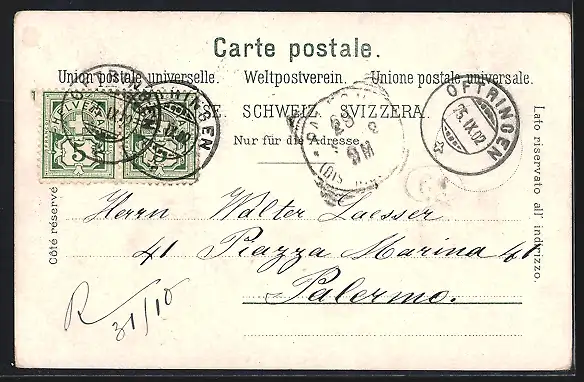 Carte postale.
Union postale universelle. Weltpostverein. Unione postale universale.
SCHWEIZ. SVIZZERA.
Nur für die Adresse.
Côté réservé
Lato riservato all' indirizzo.
HELVETIA
5
5
OFTRINGEN
OFTRINGEN
OFTRINGEN
25.IX.02
Herrn Walter Laesser
41 Piazza Marina 41
Palermo.
R 31/10